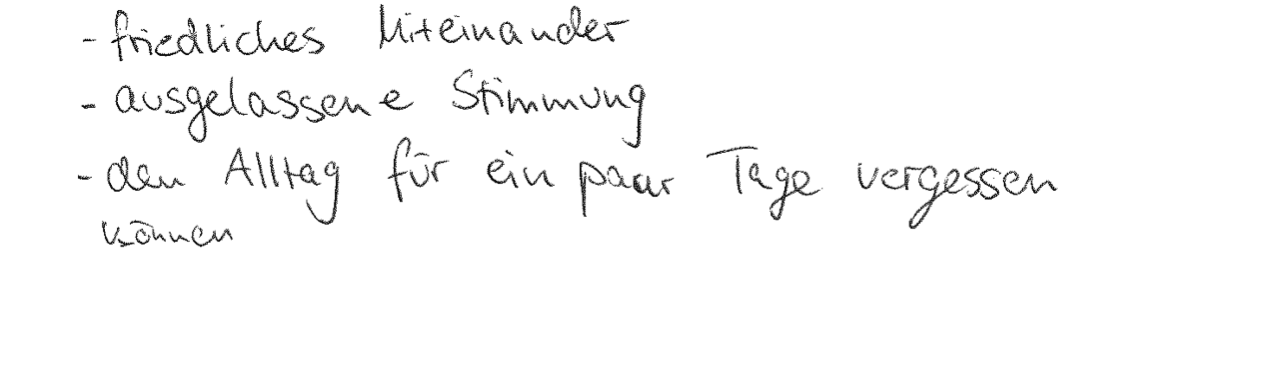 - friedliches Miteinander
- ausgelassene Stimmung
- den Alltag für ein paar Tage vergessen
können